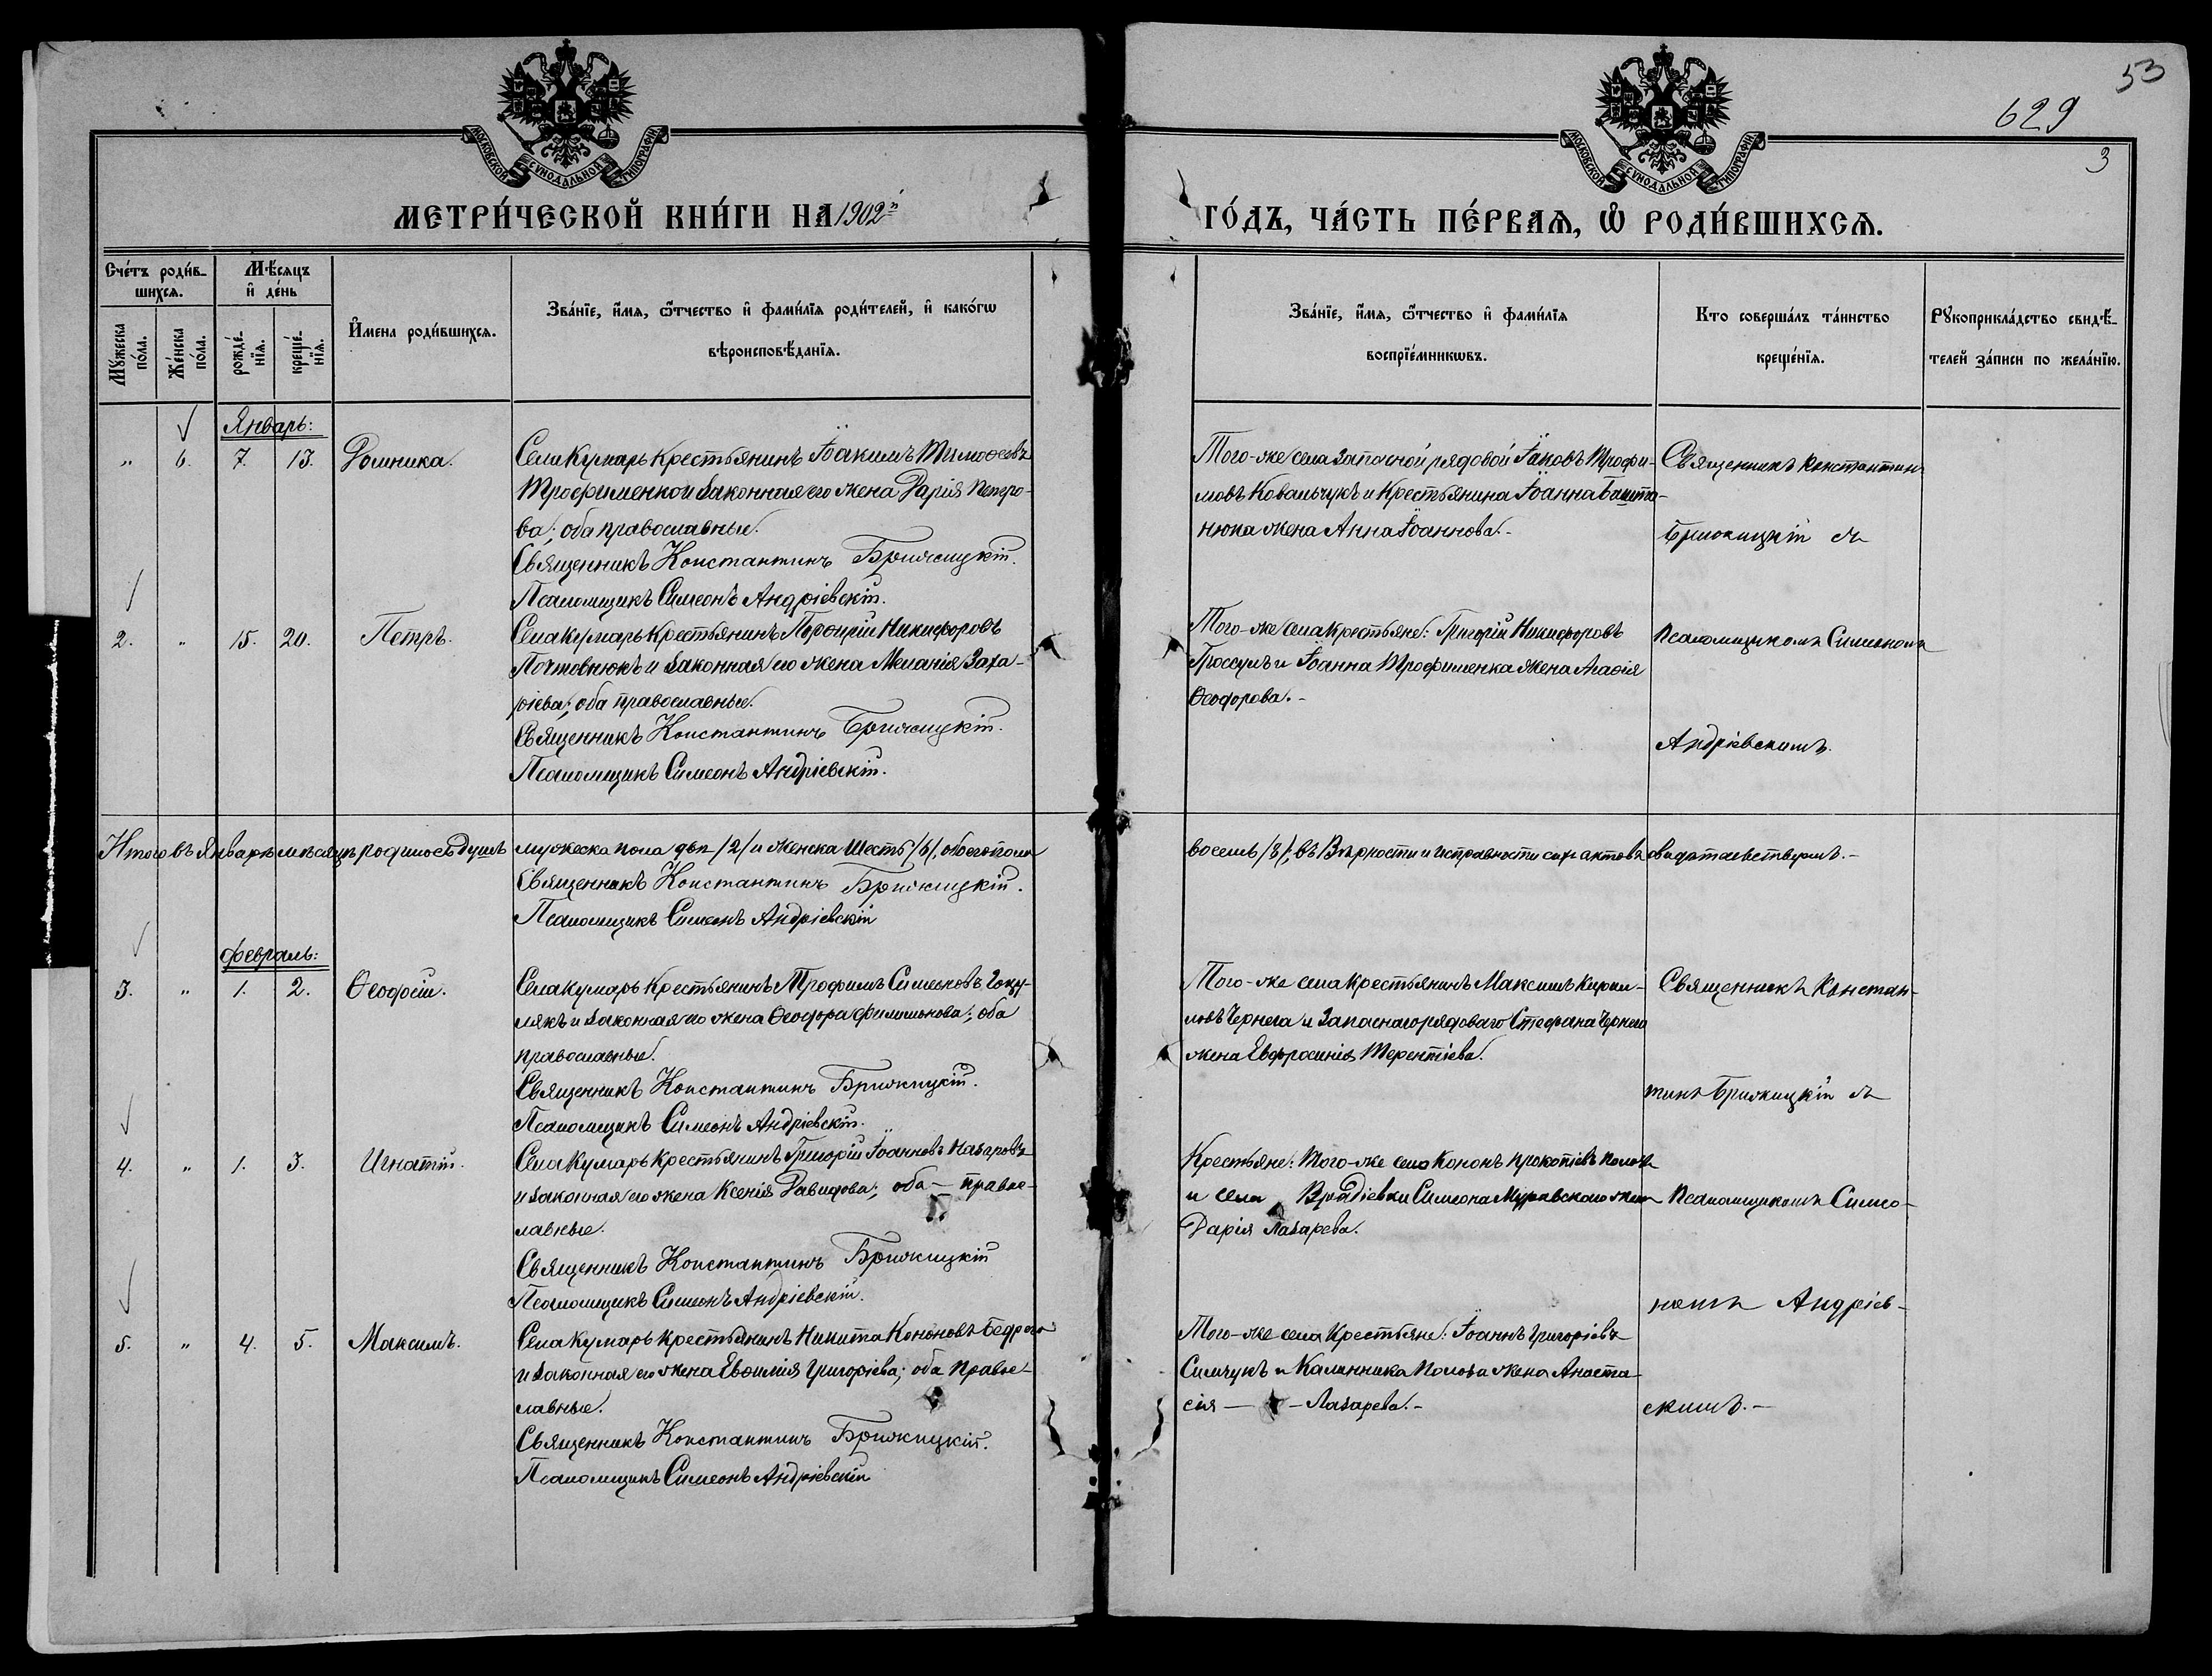 53
629
3
МОСКОВСКОЙ СУНОДАЛЬНОЙ ТИПОГРАФІИ
МОСКОВСКОЙ СУНОДАЛЬНОЙ ТИПОГРАФІИ
МЕТРИ́ЧЕСКОЙ КНИ́ГИ НА 1902й
ГО́ДЪ, ЧА́СТЬ ПЕ́РВАѦ, Ѡ҆ РОДИ́ВШИХСѦ.
Сче́тъ роди́в-
шихсѧ.
Мѣ́сѧцъ
и҆ де́нь
Мꙋ́жеска по́ла.
Же́нска по́ла.
рожде́-нїѧ.
креще́-нїѧ.
И҆мена роди́вшихсѧ.
Зва́нїе, и҆́мѧ, ѻ҆́тчество и҆ фами́лїѧ роди́телей, и҆ како́гѡ
вѣроисповѣ́данїѧ.
Зва́нїе, и҆́мѧ, ѻ҆́тчество и҆ фами́лїѧ
воспрїе́мникѡвъ.
Кто соверша́лъ та́инство
креще́нїѧ.
Рꙋкоприкла́дство свидѣ́-
телей за́писи по жела́нїю.
Январь:
" 6. 7. 13. Домника.
Села Кумарь крестьянинъ Іоакимъ Тимоѳеевъ
Трофименко и законная его жена Дарія Петро-
ва; оба православные.
Священникъ Константинъ Брижицкій.
Псаломщикъ Симеонъ Андріевскій.
Того-же села запасной рядовой Іаковъ Трофи-
мовъ Ковальчукъ и крестьянина Іоанна Башта-
нюка жена Анна Іоаннова.-
Священникъ Константинъ
Брижицкій съ
2. " 15. 20. Петръ.
Села Кумарь крестьянинъ Порфирій Никифоровъ
Почтовнюкъ и законная его жена Меланія Заха-
ріева; оба православные.
Священникъ Константинъ Брижицкій.
Псаломщикъ Симеонъ Андріевскій.
Того-же села крестьяне: Григорій Никифоровъ
Гроссулъ и Іоанна Трофименка жена Агафія
Ѳеодорова.-
Псаломщикомъ Симеономъ
Андріевскимъ.
Итого въ Январѣ мѣсяцѣ родилось душъ мужеска пола двѣ /2/ и женска шесть /6/, обоего пола
восемь /8/; въ вѣрности и исправности сихъ актовъ свидѣтельствуемъ.-
Священникъ Константинъ Брижицкій.
Псаломщикъ Симеонъ Андріевскій
Февраль:
3. " 1. 2. Ѳеодосій.
Села Кумарь крестьянинъ Трофимъ Симеоновъ
и законная его жена Ѳеодора Филимонова; оба
православные.
Священникъ Константинъ Брижицкій.
Псаломщикъ Симеонъ Андріевскій.
Того-же села крестьянинъ Максимъ Кирил-
ловъ Чернега и запаснаго рядоваго Стефана Чернега
жена Евфросинія Терентіева.
Священникъ Констан-
тинъ Брижицкій съ
4. " 1. 3. Игнатій.
Села Кумарь крестьянинъ Григорій Іоанновъ Назаровъ
и законная его жена Ксенія Давидова; оба — право-
славные.
Священникъ Константинъ Брижицкій
Псаломщикъ Симеонъ Андріевскій.
Крестьяне: Того-же села Кононъ Прокопіевъ
и села Врадіевки Симеона Муравскаго жена
Дарія Лазарева.
Псаломщикомъ Симео-
номъ Андріев-
5. " 4. 5. Максимъ.
Села Кумарь крестьянинъ Никита Кононовъ
и законная его жена Евфимія Григоріева; оба право-
славные.
Священникъ Константинъ Брижицкій.
Псаломщикъ Симеонъ Андріевскій
Того-же села крестьяне: Іоаннъ Григоріевъ
Симчукъ и Калинника Полоза жена Анаста-
сія — — Лазарева.-
скимъ.-